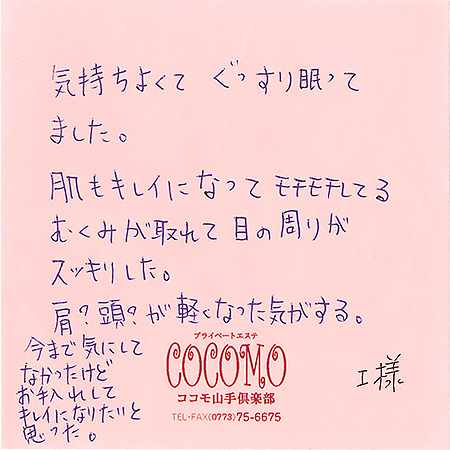 気持ちよくて ぐっすり眠って
ました。
肌もキレイになってモチモチしてる
むくみが取れて目の周りが
スッキリした。
肩?頭?が軽くなった気がする。
今まで気にして
なかったけど
お手入れして
キレイになりたいと
思った。
プライベートエステ
COCOMO
ココモ山手倶楽部
TEL・FAX(0773)75-6675
I様